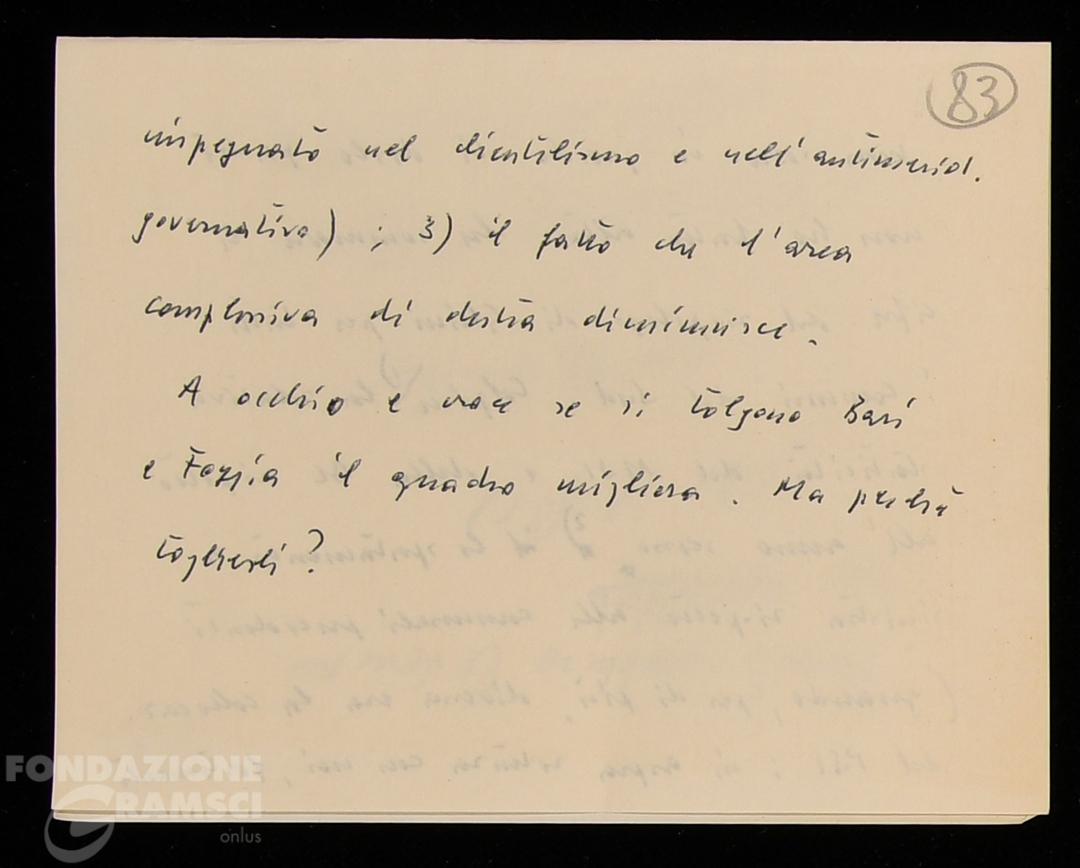 83
impegnato nel clientelismo e nell'antimerid.
governativa) ; 3) il fatto che l'area
complessiva di destra diminuisce.
A occhio e croce se si tolgono Bari
e Foggia il quadro migliora. Ma perché
toglierli?
FONDAZIONE
GRAMSCI
onlus